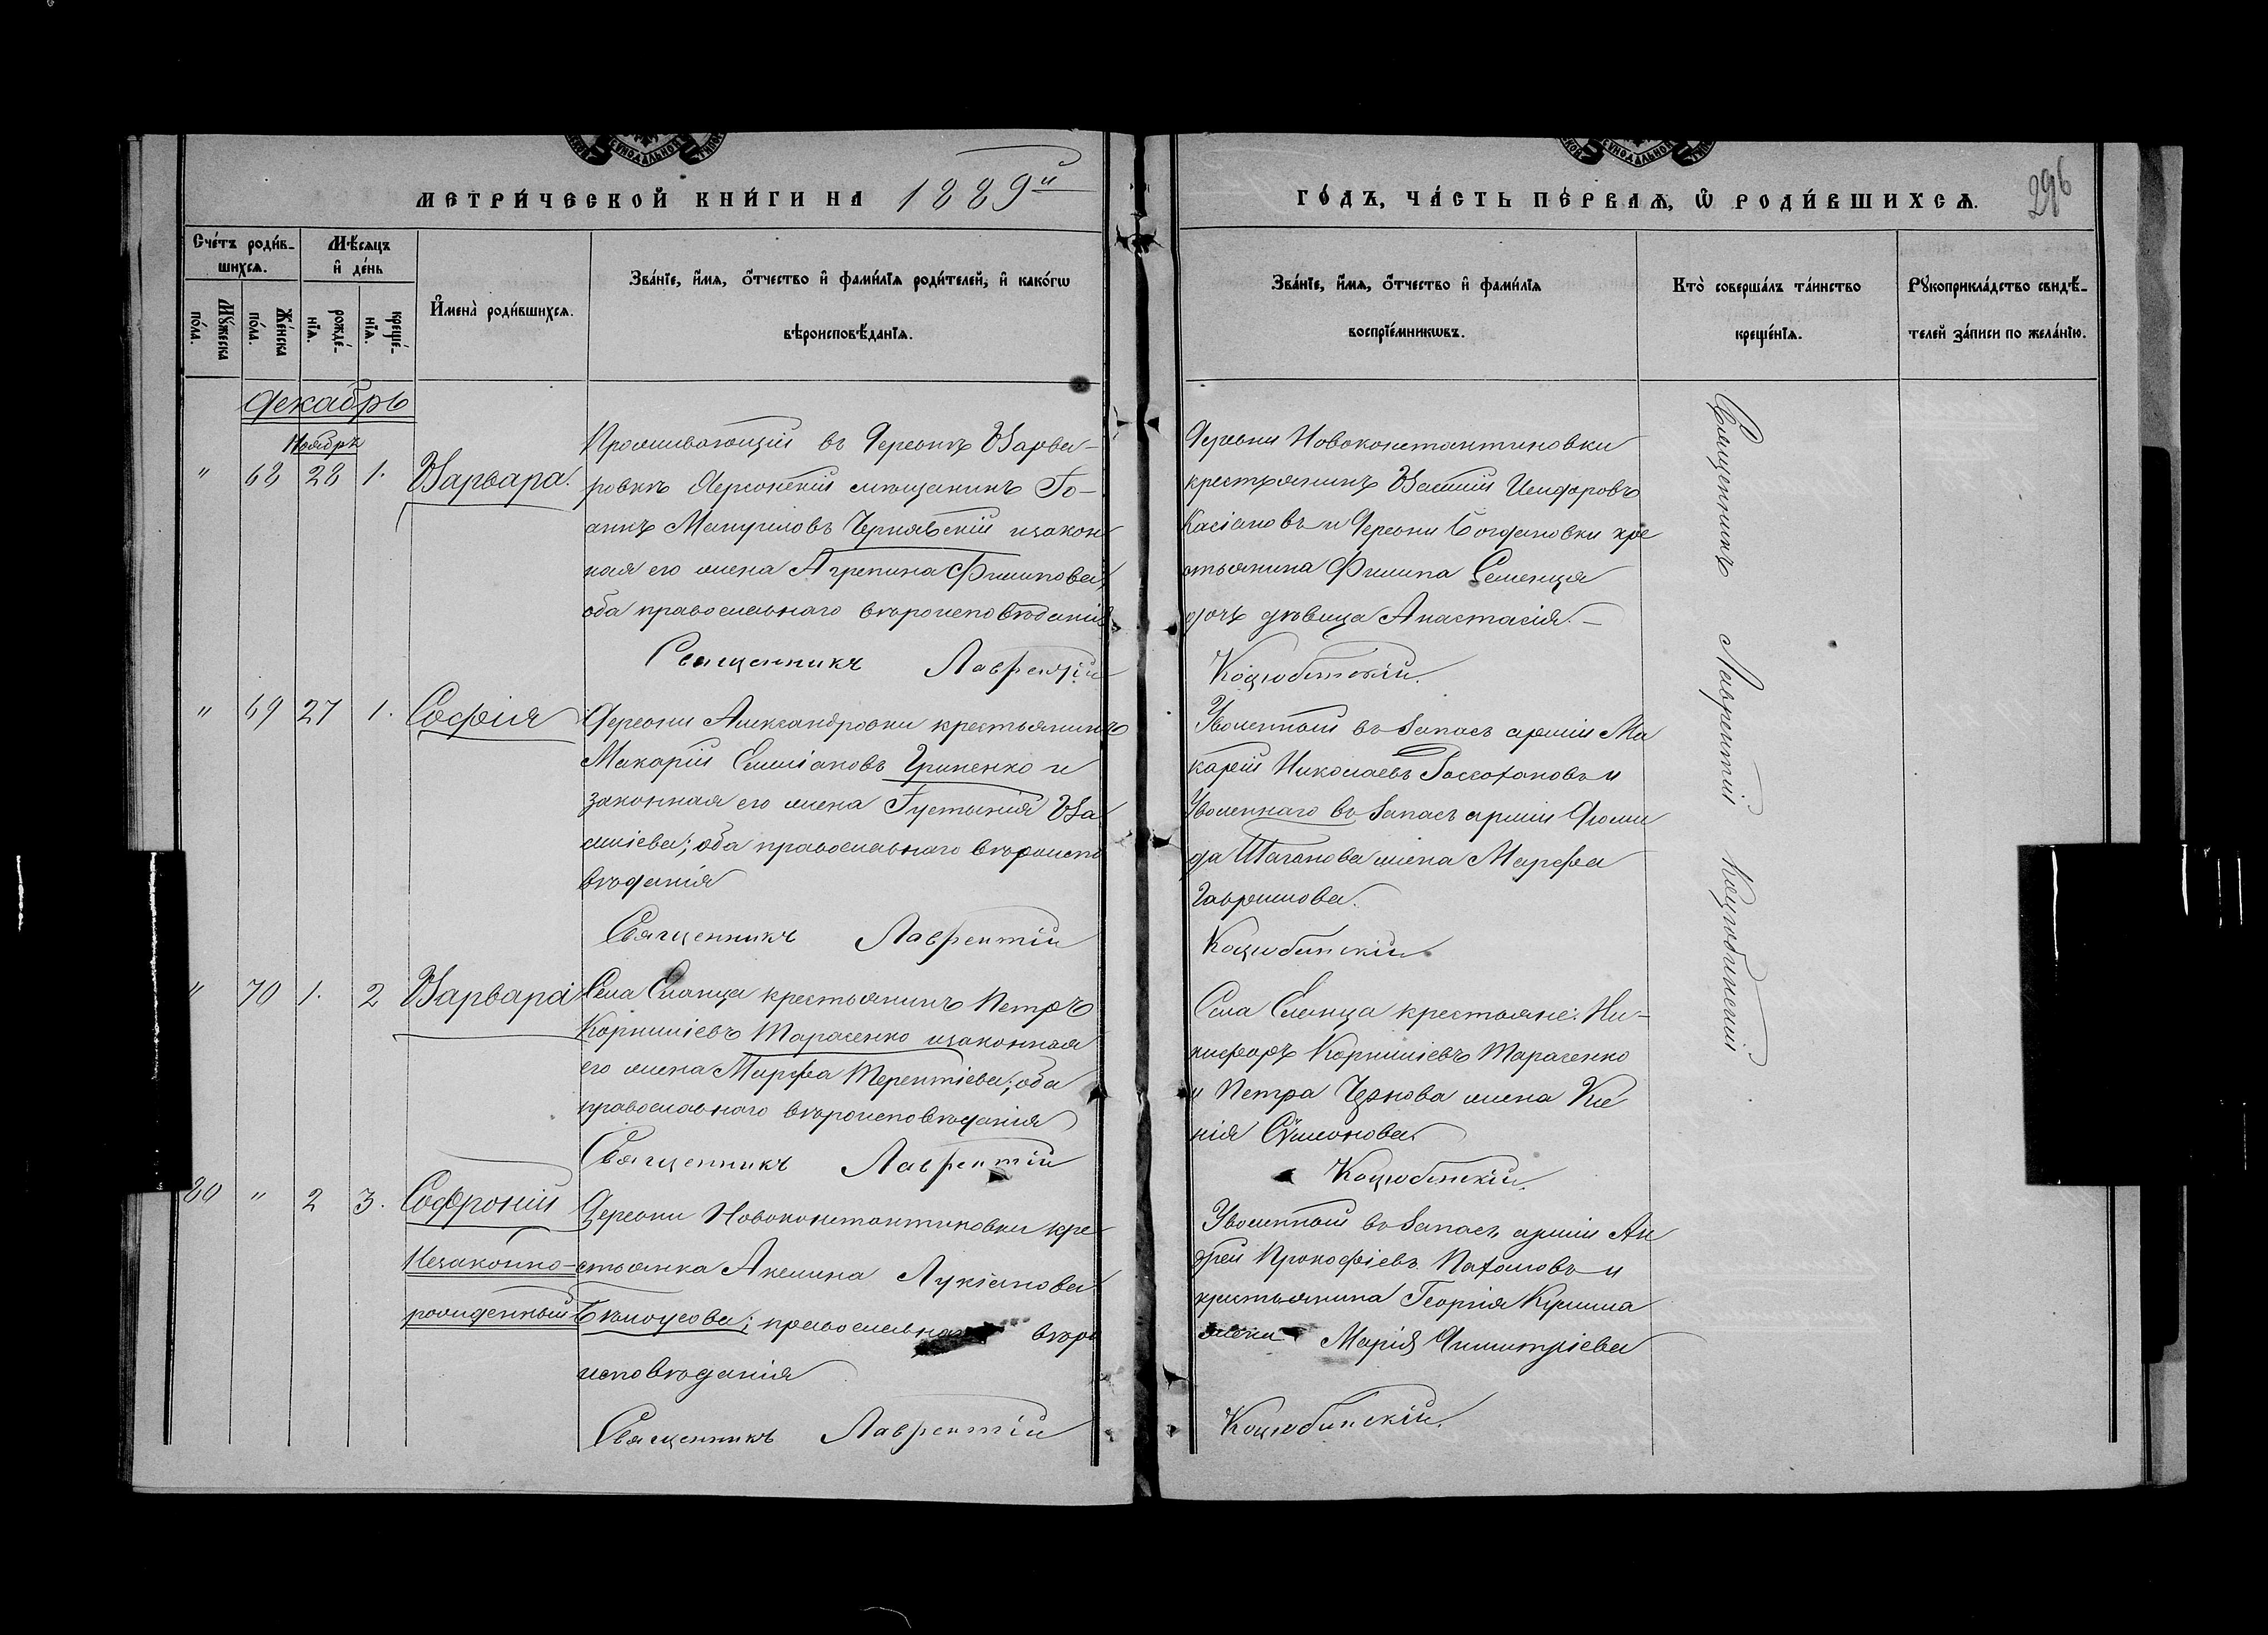 МЕТРИ́ЧЕСКОЙ КНИ́ГИ НА 1889й
ГО́ДЪ, ЧА́СТЬ ПЕ́РВАѦ, Ѡ҆ РОДИ́ВШИХСѦ.
296
Сче́тъ роди́в-
шихсѧ.
Мѣ́сѧцъ
и҆ де́нь
Мꙋ́жеска
по́ла.
Же́нска
по́ла.
рожде́-
нїѧ.
креще́-
нїѧ.
И҆мена̀ роди́вшихсѧ.
Зва́нїе, и҆́мѧ, ѻ҆́тчество и҆ фами́лїѧ роди́телей, и҆ како́гѡ
вѣроисповѣ́данїѧ.
Зва́нїе, и҆́мѧ, ѻ҆́тчество и҆ фами́лїѧ
воспрїе́мникѡвъ.
Кто̀ соверша́лъ та́инство
креще́нїѧ.
Рꙋкоприкла́дство свидѣ́-
телей за́писи по жела́нїю.
Декабрь
Ноябрь
" 68 28 1. Варвара.
Проживающій въ Деревнѣ Варва-
ровкѣ Херсонскій мѣщанинъ Іо-
аннъ Мануиловъ Чернявскій и закон
ная его жена Агрепина Филипова;
оба православнаго вѣроисповѣданія
Священникъ Лаврентій
Деревни Новоконстантиновки
крестьянинъ Василій Исидоровъ
Касіановъ и Деревни Богдановки кре
стьянина Филипа Семенца
дочь дѣвица Анастасія. –
Коцюбинскій.
" 69 27 1. Софія
Деревни Александровки крестьянинъ
Макарій Емиліановъ Гриненко и
законная его жена Густинія Ва
силіева; оба православнаго вѣроиспо
вѣданія
Священникъ Лаврентій
Уволенный въ запасъ арміи Ма
карій Николаевъ
Уволеннаго въ запасъ арміи Діоми
да жена Марфа
Гавриилова.
Коцюбинскій
" 70 1. 2 Варвара
Села Еланца крестьянинъ Петръ
Корниліевъ Тарасенко и законная
его жена Марфа Терентіева; оба
православнаго вѣроисповѣданія
Священникъ Лаврентій
Села Еланца крестьяне: Ни-
кифоръ Корниліевъ Тарасенко
и Петра жена Ксе
нія Сѵмонова
Коцюбинскій.
80 " 2 3. Софроній
Незаконно-
рожденный
Деревни Новоконстантиновки кре
стьянка Акелина Лукіанова
Бѣлоусова; православнаго вѣро
исповѣданія
Священникъ Лаврентій
Уволенный въ запасъ арміи Ан
дрей Прокофіевъ Пахомовъ и
крестьянина Георгія
жена Марія Димитріева
Коцюбинскій.
Священникъ Лаврентій Коцюбинскій